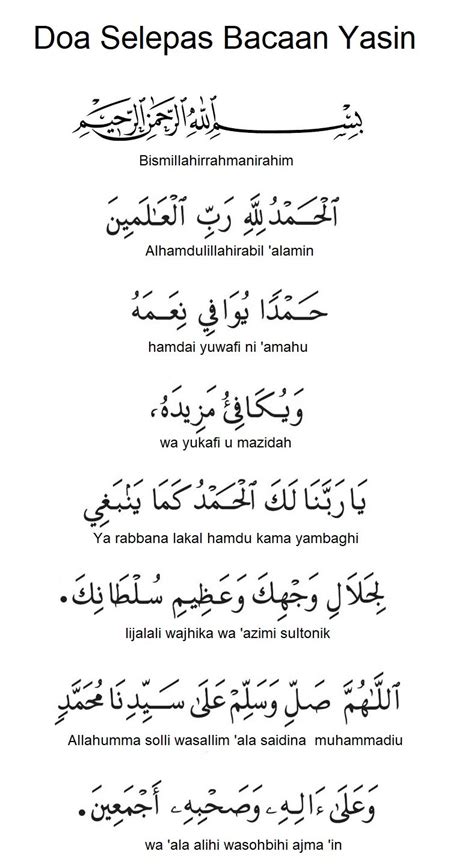 Doa Selepas Bacaan Yasin
بِسْمِ ٱللَّهِ ٱلرَّحْمَٰنِ ٱلرَّحِيمِ
Bismillahirrahmanirahim
ٱلْحَمْدُ لِلَّهِ رَبِّ ٱلْعَٰلَمِينَ
Alhamdulillahirabil 'alamin
حَمْدًا يُوَافِي نِعَمَهُ
hamdai yuwafi ni 'amahu
وَيُكَافِئُ مَزِيدَهُ،
wa yukafi u mazidah
يَا رَبَّنَا لَكَ ٱلْحَمْدُ كَمَا يَنْبَغِي
Ya rabbana lakal hamdu kama yambaghi
لِجَلَالِ وَجْهِكَ وَعَظِيمِ سُلْطَانِكَ.
lijalali wajhika wa 'azimi sultonik
ٱللَّهُمَّ صَلِّ وَسَلِّمْ عَلَى سَيِّدِنَا مُحَمَّدٍ
Allahumma solli wasallim 'ala saidina muhammadiu
وَعَلَىٰ ءَالِهِۦ وَصَحْبِهِۦ أَجْمَعِينَ.
wa 'ala alihi wasohbihi ajma 'in